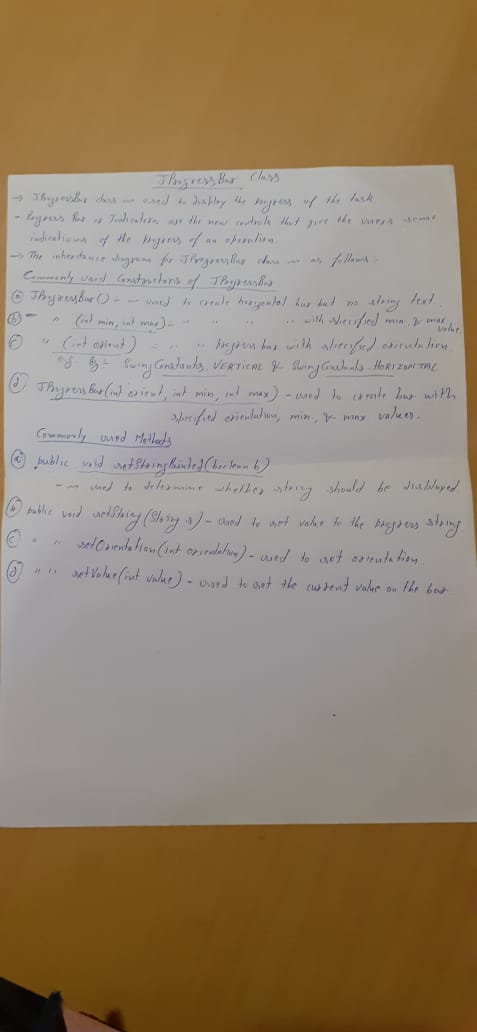 JProgressBar Class
→ JProgressBar class is used to display the progress of the task.
- Progress Bar or Indicators are the new controls that give the users some
indications of the progress of an operation.
→ The inheritance diagram for JProgressBar class is as follows :-
Commonly used Constructors of JProgressBar
(a) JProgressBar() :- — used to create horizontal bar but no string text.
(b) - " (int min, int max) - " " " " with specified min. & max value.
(c) " (int orient) - " " progress bar with specified orientation.
eg. By :- SwingConstants.VERTICAL & SwingConstants.HORIZONTAL
(d) JProgressBar(int orient, int min, int max) - used to create bar with
specified orientation, min., & max values.
Commonly used Methods
(a) public void setStringPainted(boolean b)
- is used to determine whether string should be displayed
(b) public void setString(String s) - used to set value to the progress string.
(c) " " setOrientation(int orientation) - used to set orientation.
(d) " " setValue(int value) - used to set the current value on the bar